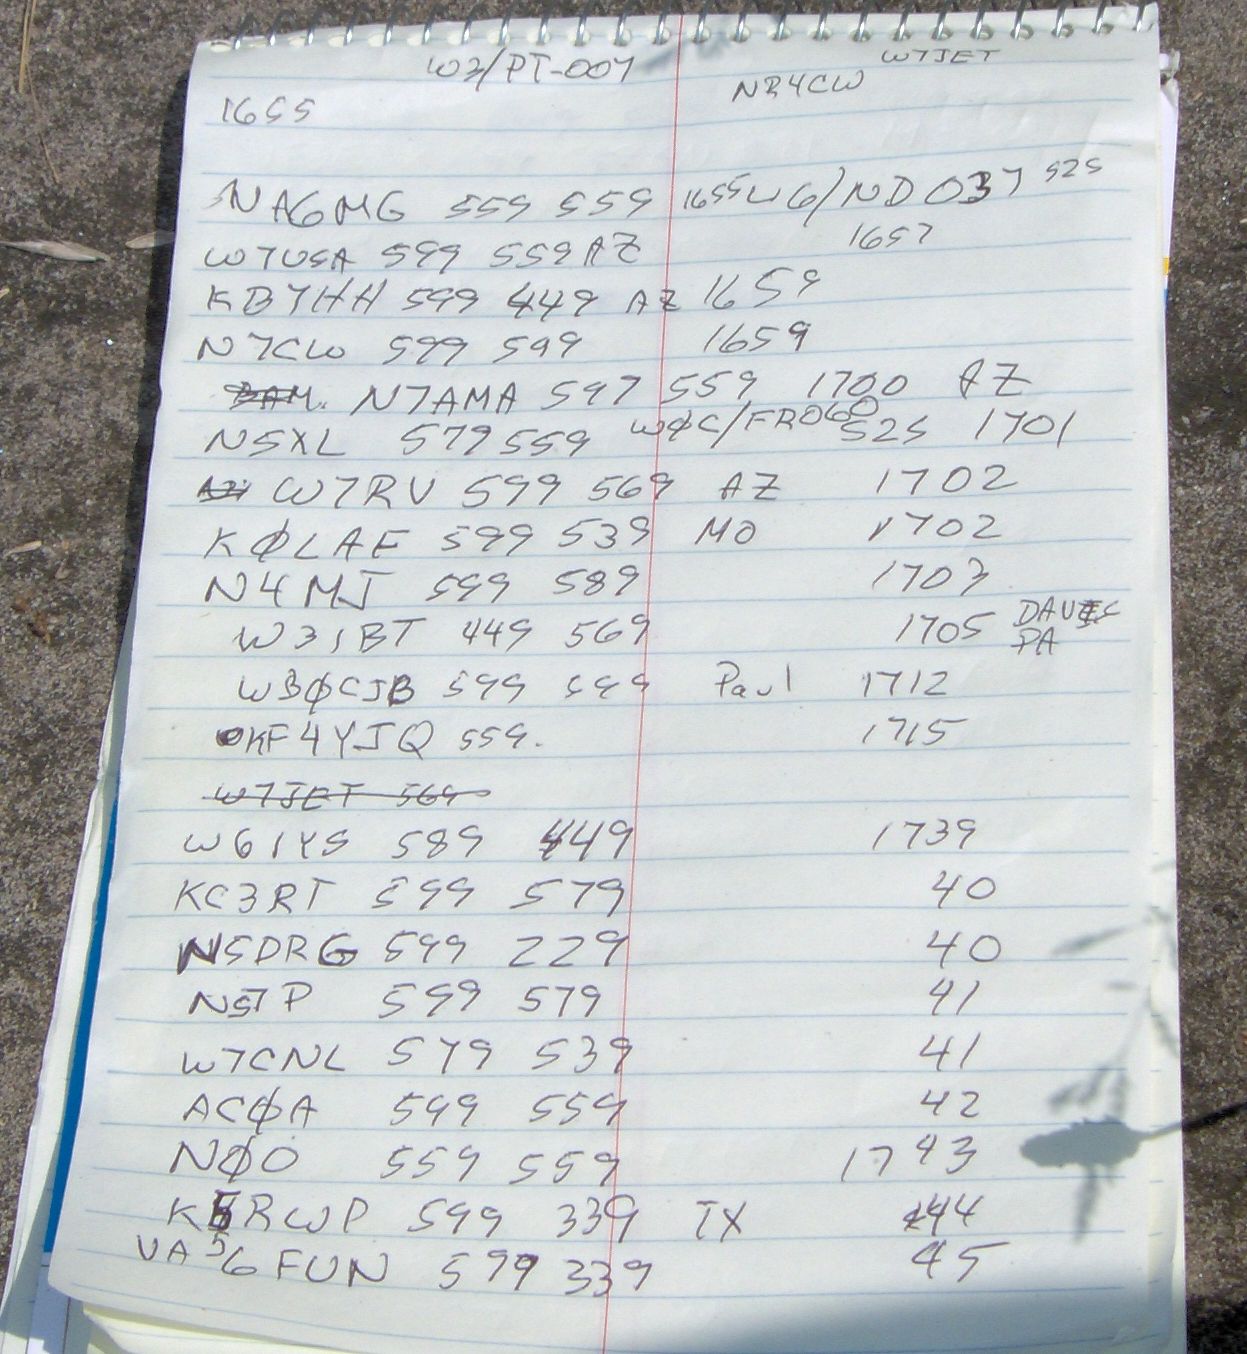 W7JET
W3/PT-007 NB4CW
1655
NA6MG 559 559 1655 W6/ND037 525
W7USA 599 559 AZ 1657
KB7HH 599 449 AZ 1659
N7CW 599 599 1659
N7AMA 597 559 1700 AZ
N5XL 579 559 WØC/FR060 525 1701
W7RV 599 569 AZ 1702
KØLAF 599 539 MO 1702
N4MJ 599 589 1703
W31BT 449 569 1705 DAVES
PA
WBØCJB 599 599 Paul 1712
KF4YJQ 559. 1715
W7JET 569
W61YS 589 449 1739
KC3RT 599 579 40
N5DRG 599 229 40
N5TP 599 579 41
W7CNL 579 539 41
ACØA 599 559 42
NØO 559 559 1743
K5RWP 599 339 TX 44
VA 6FUN 599 339 45